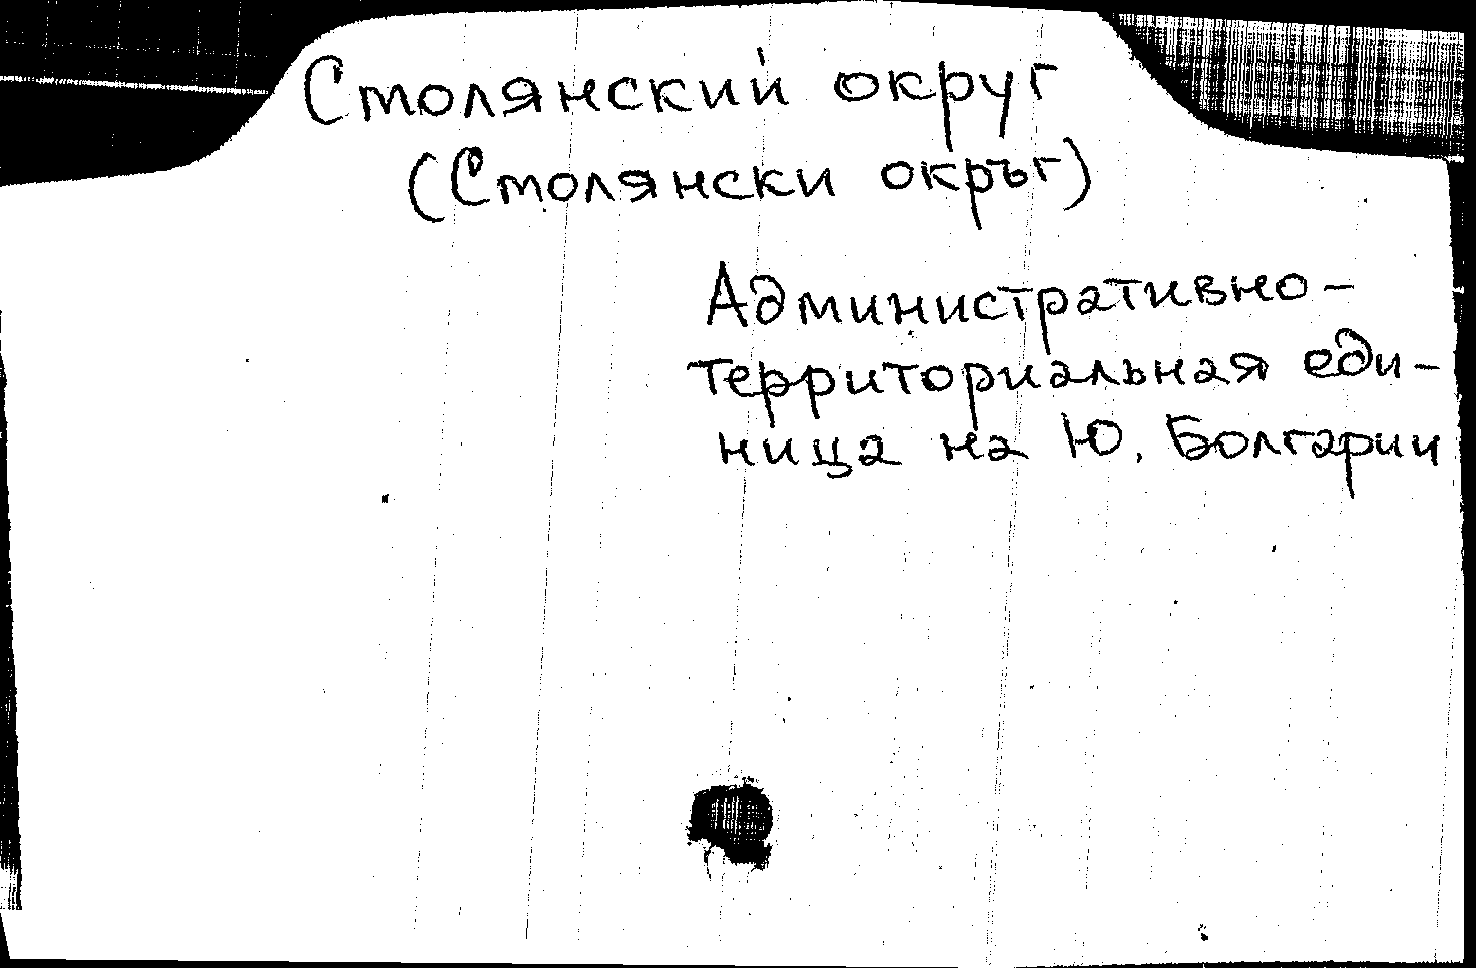 Столянский округ
(Столянски окръг)
Административно-
территориальная еди-
ница на Ю. Болгарии